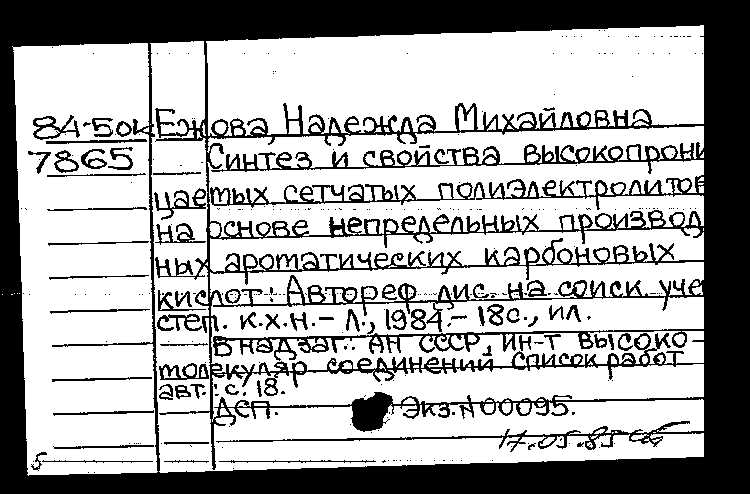 84-5ок Ежова, Надежда Михайловна
7865 Синтез и свойства высокопрони
цаемых сетчатых полиэлектролитов
на основе непредельных производ
ных ароматических карбоновых
кислот: Автореф дис. на соиск. уче
степ. к.х.н. - Л., 1984. - 18с., ил.
В надзаг.: АН СССР, ин-т высоко-
молекуляр соединений Список работ
авт.: с. 18.
Деп. Экз. N 00095.
17.05.85
5